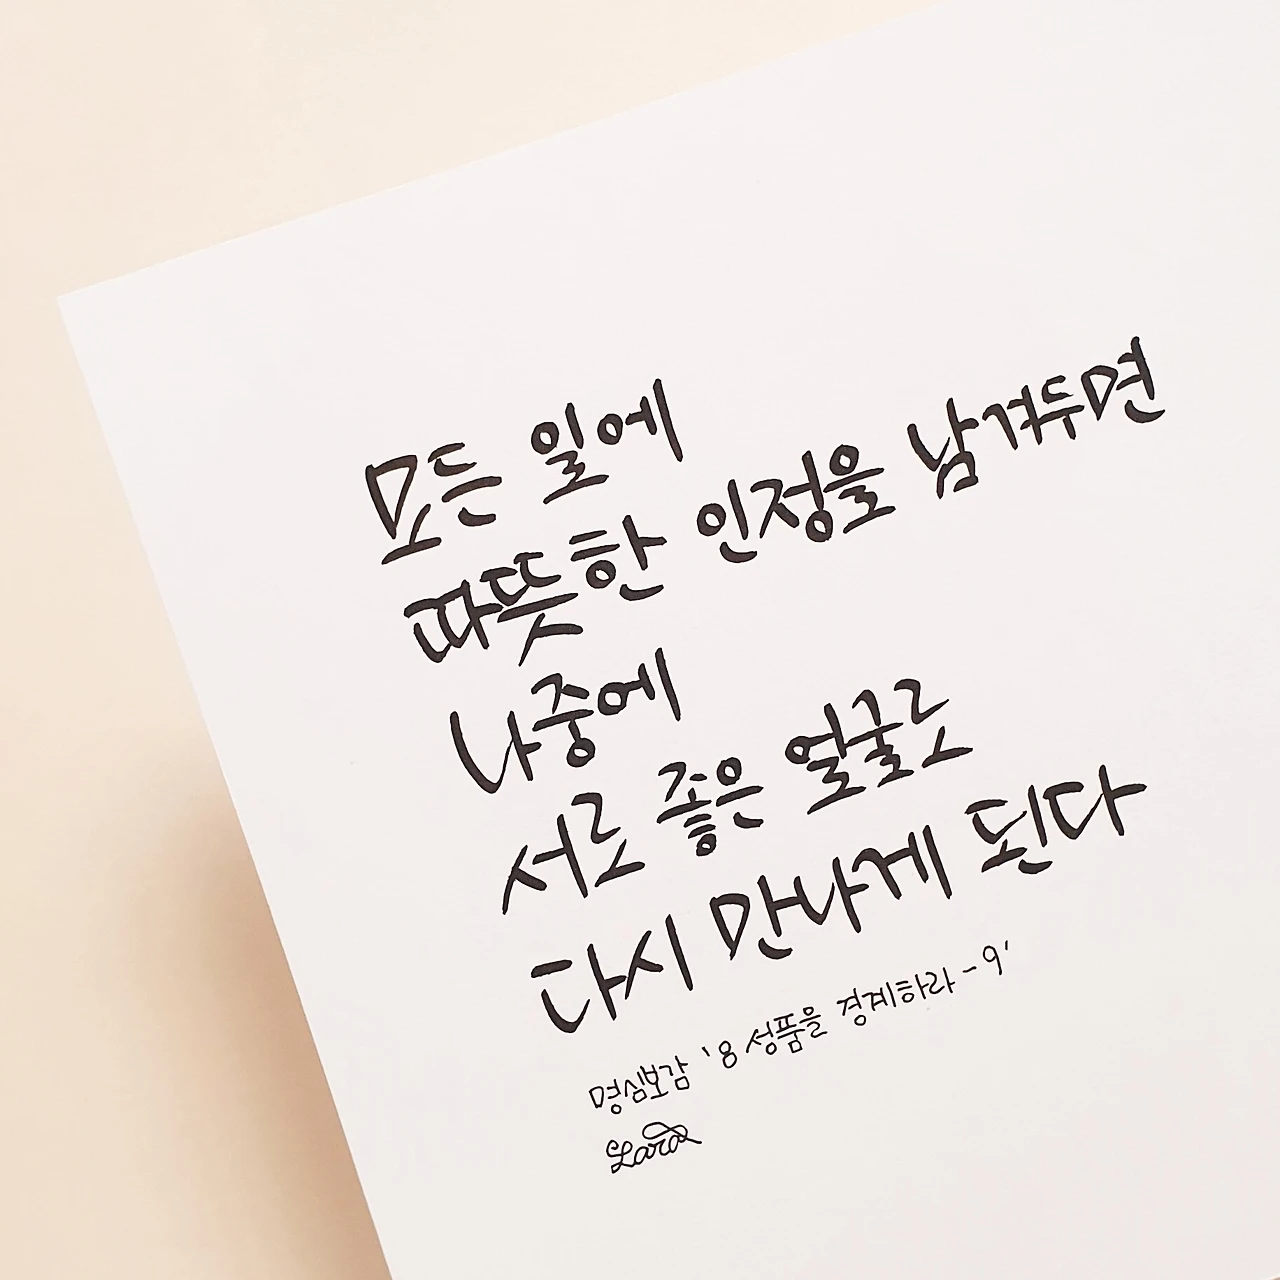 모든 일에
따뜻한 인정을 남겨두면
나중에
서로 좋은 얼굴로
다시 만나게 된다
명심보감 '8 성품을 경계하라 - 9'
Lara